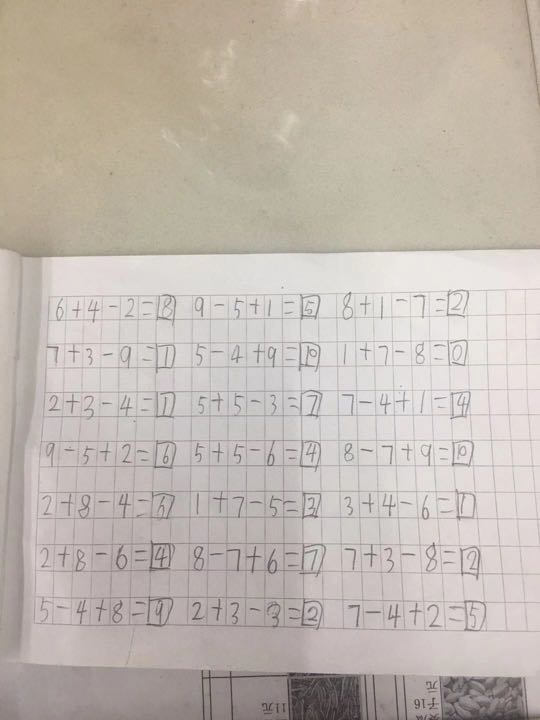 6+4-2=8 9-5+1=5 8+1-7=2
7+3-9=1 5-4+9=10 1+7-8=0
2+3-4=1 5+5-3=7 7-4+1=4
9-5+2=6 5+5-6=4 8-7+9=10
2+8-4=6 1+7-5=3 3+4-6=1
2+8-6=4 8-7+6=7 7+3-8=2
5-4+8=9 2+3-3=2 7-4+2=5
11元
子16
元